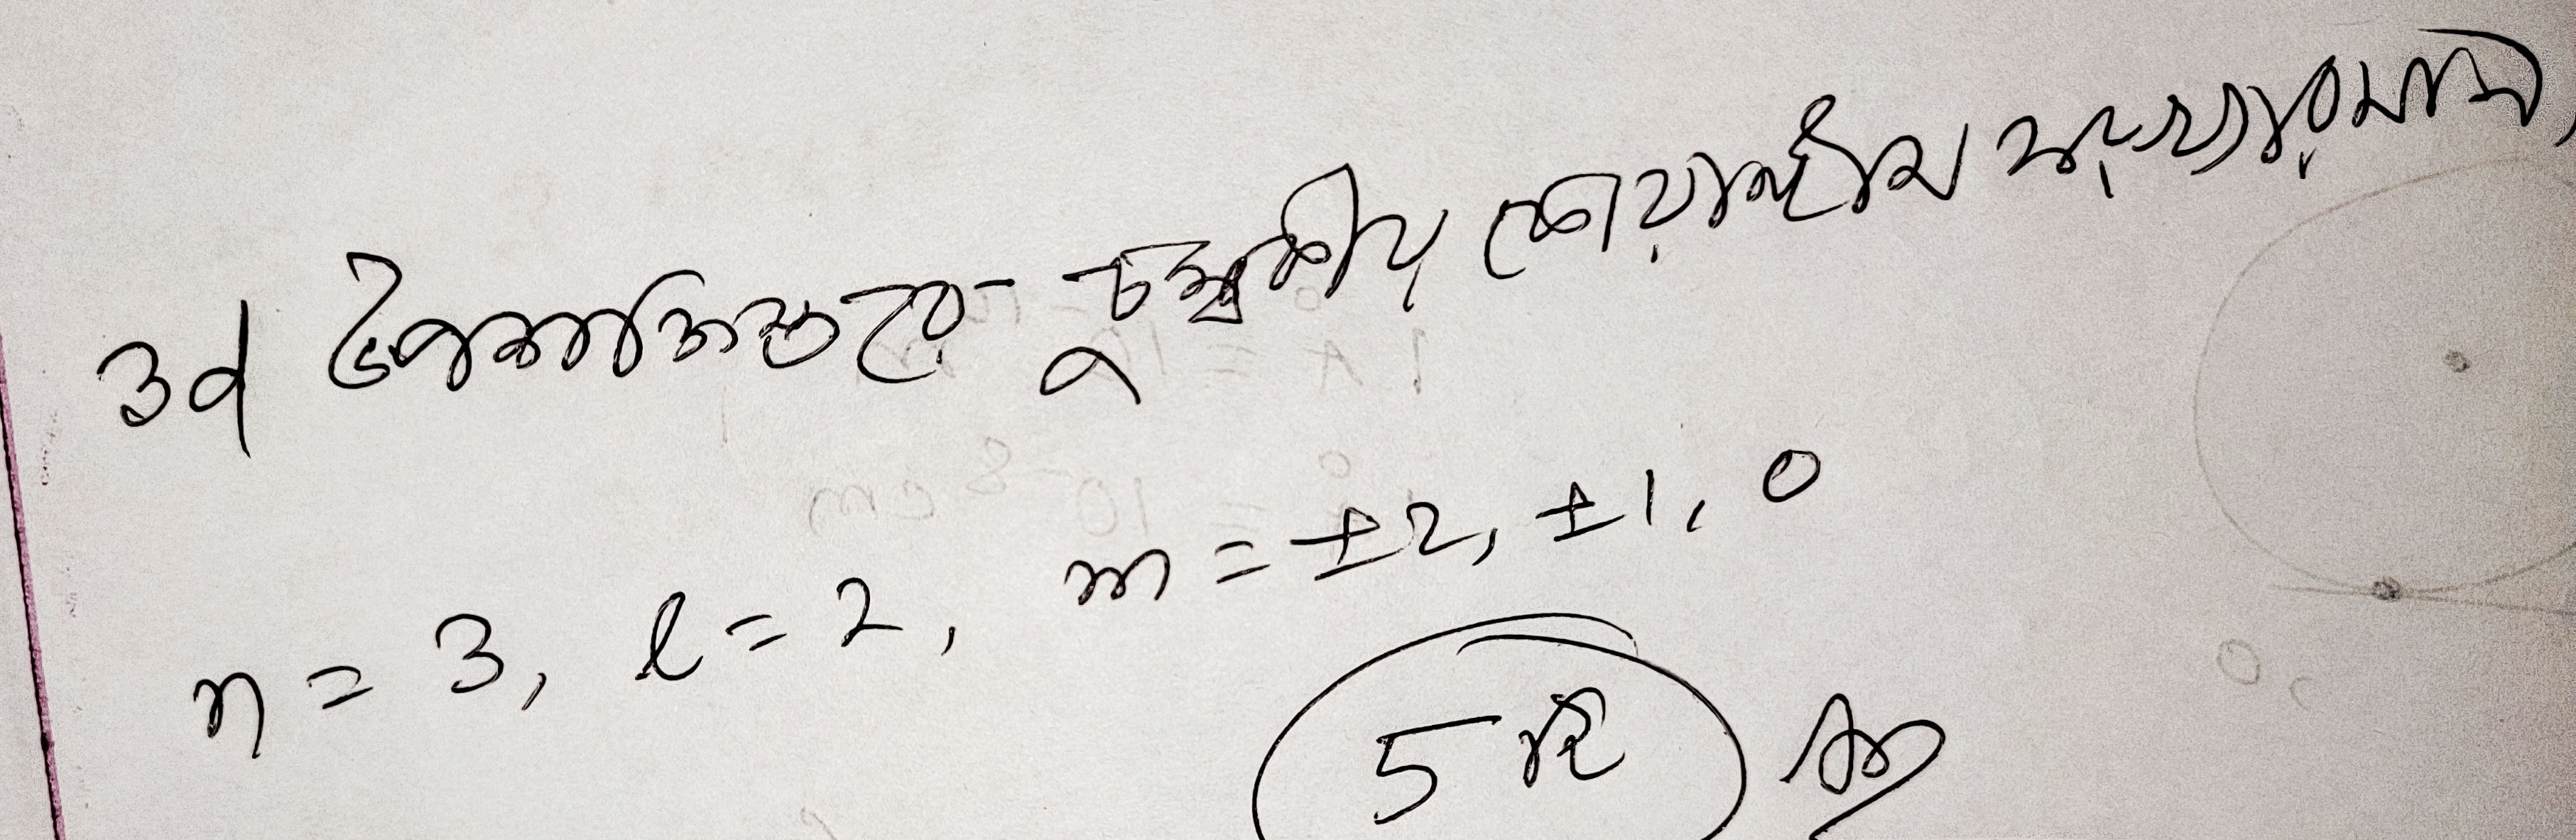 3d উপশক্তিস্তরে চুম্বকীয় কোয়ান্টাম সংখ্যার মান,
n = 3, l = 2, m = ±2, ±1, 0
5 টি Ans